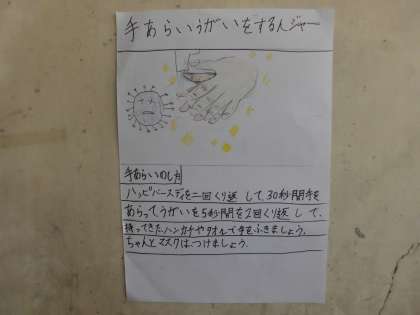 手あらいうがいをする人ジャー
手あらいのし方
ハッピバースデイを二回くり返して、30秒間手を
あらって、うがいを5秒間を2回くり返して、
持ってきたハンカチやタオルで手をふきましょう。
ちゃんとマスクはつけましょう。